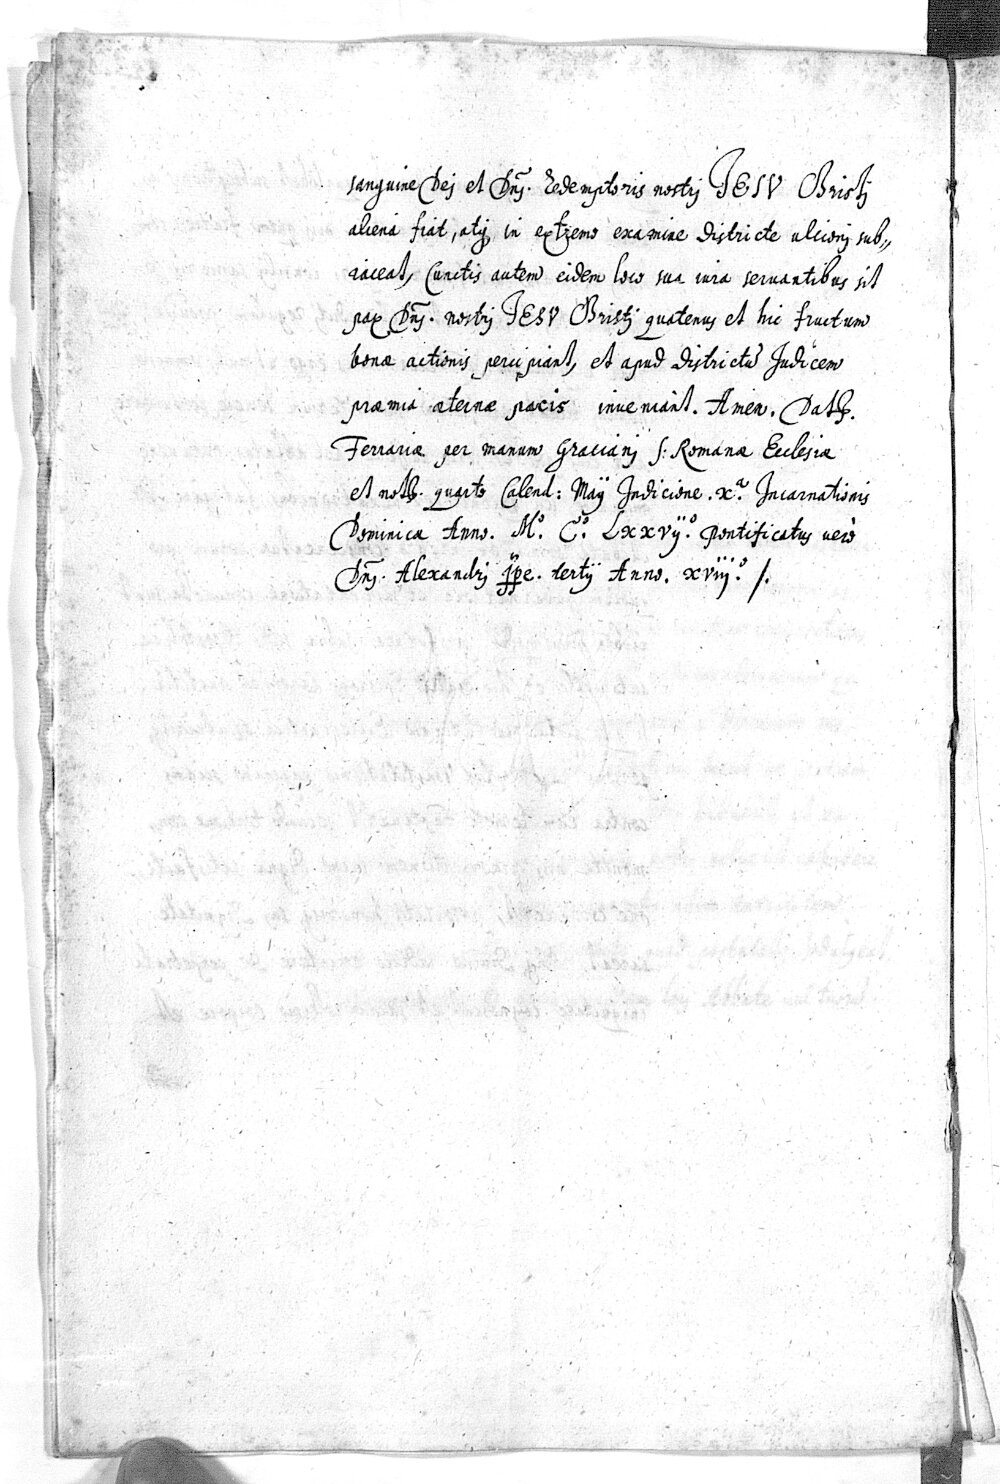 sanguine Dej et Dnj. Redemptoris nostrj JESV Christj
aliena fiat, atq; in extremo examine districte ulcionj sub,,
iaceat, Cunctis autem eidem loco sua iura seruantibus sit
pax Dnj. nostrj JESV Christj quatenus et hic fructum
bonæ actionis percipiant, et apud districtū Judicem
præmia æternæ pacis inueniant. Amen. Datꝭ.
Ferrariæ per manum Gracianj S: Romanæ Ecclesiæ
et notꝭ. quarto Calend: Maÿ Indicione .xª. Incarnationis
Dominicæ Anno. M.º C.º LXXvÿ.º Pontificatus uerò
Dnj. Alexandrj ppe. tertÿ Anno. xviij.º /.